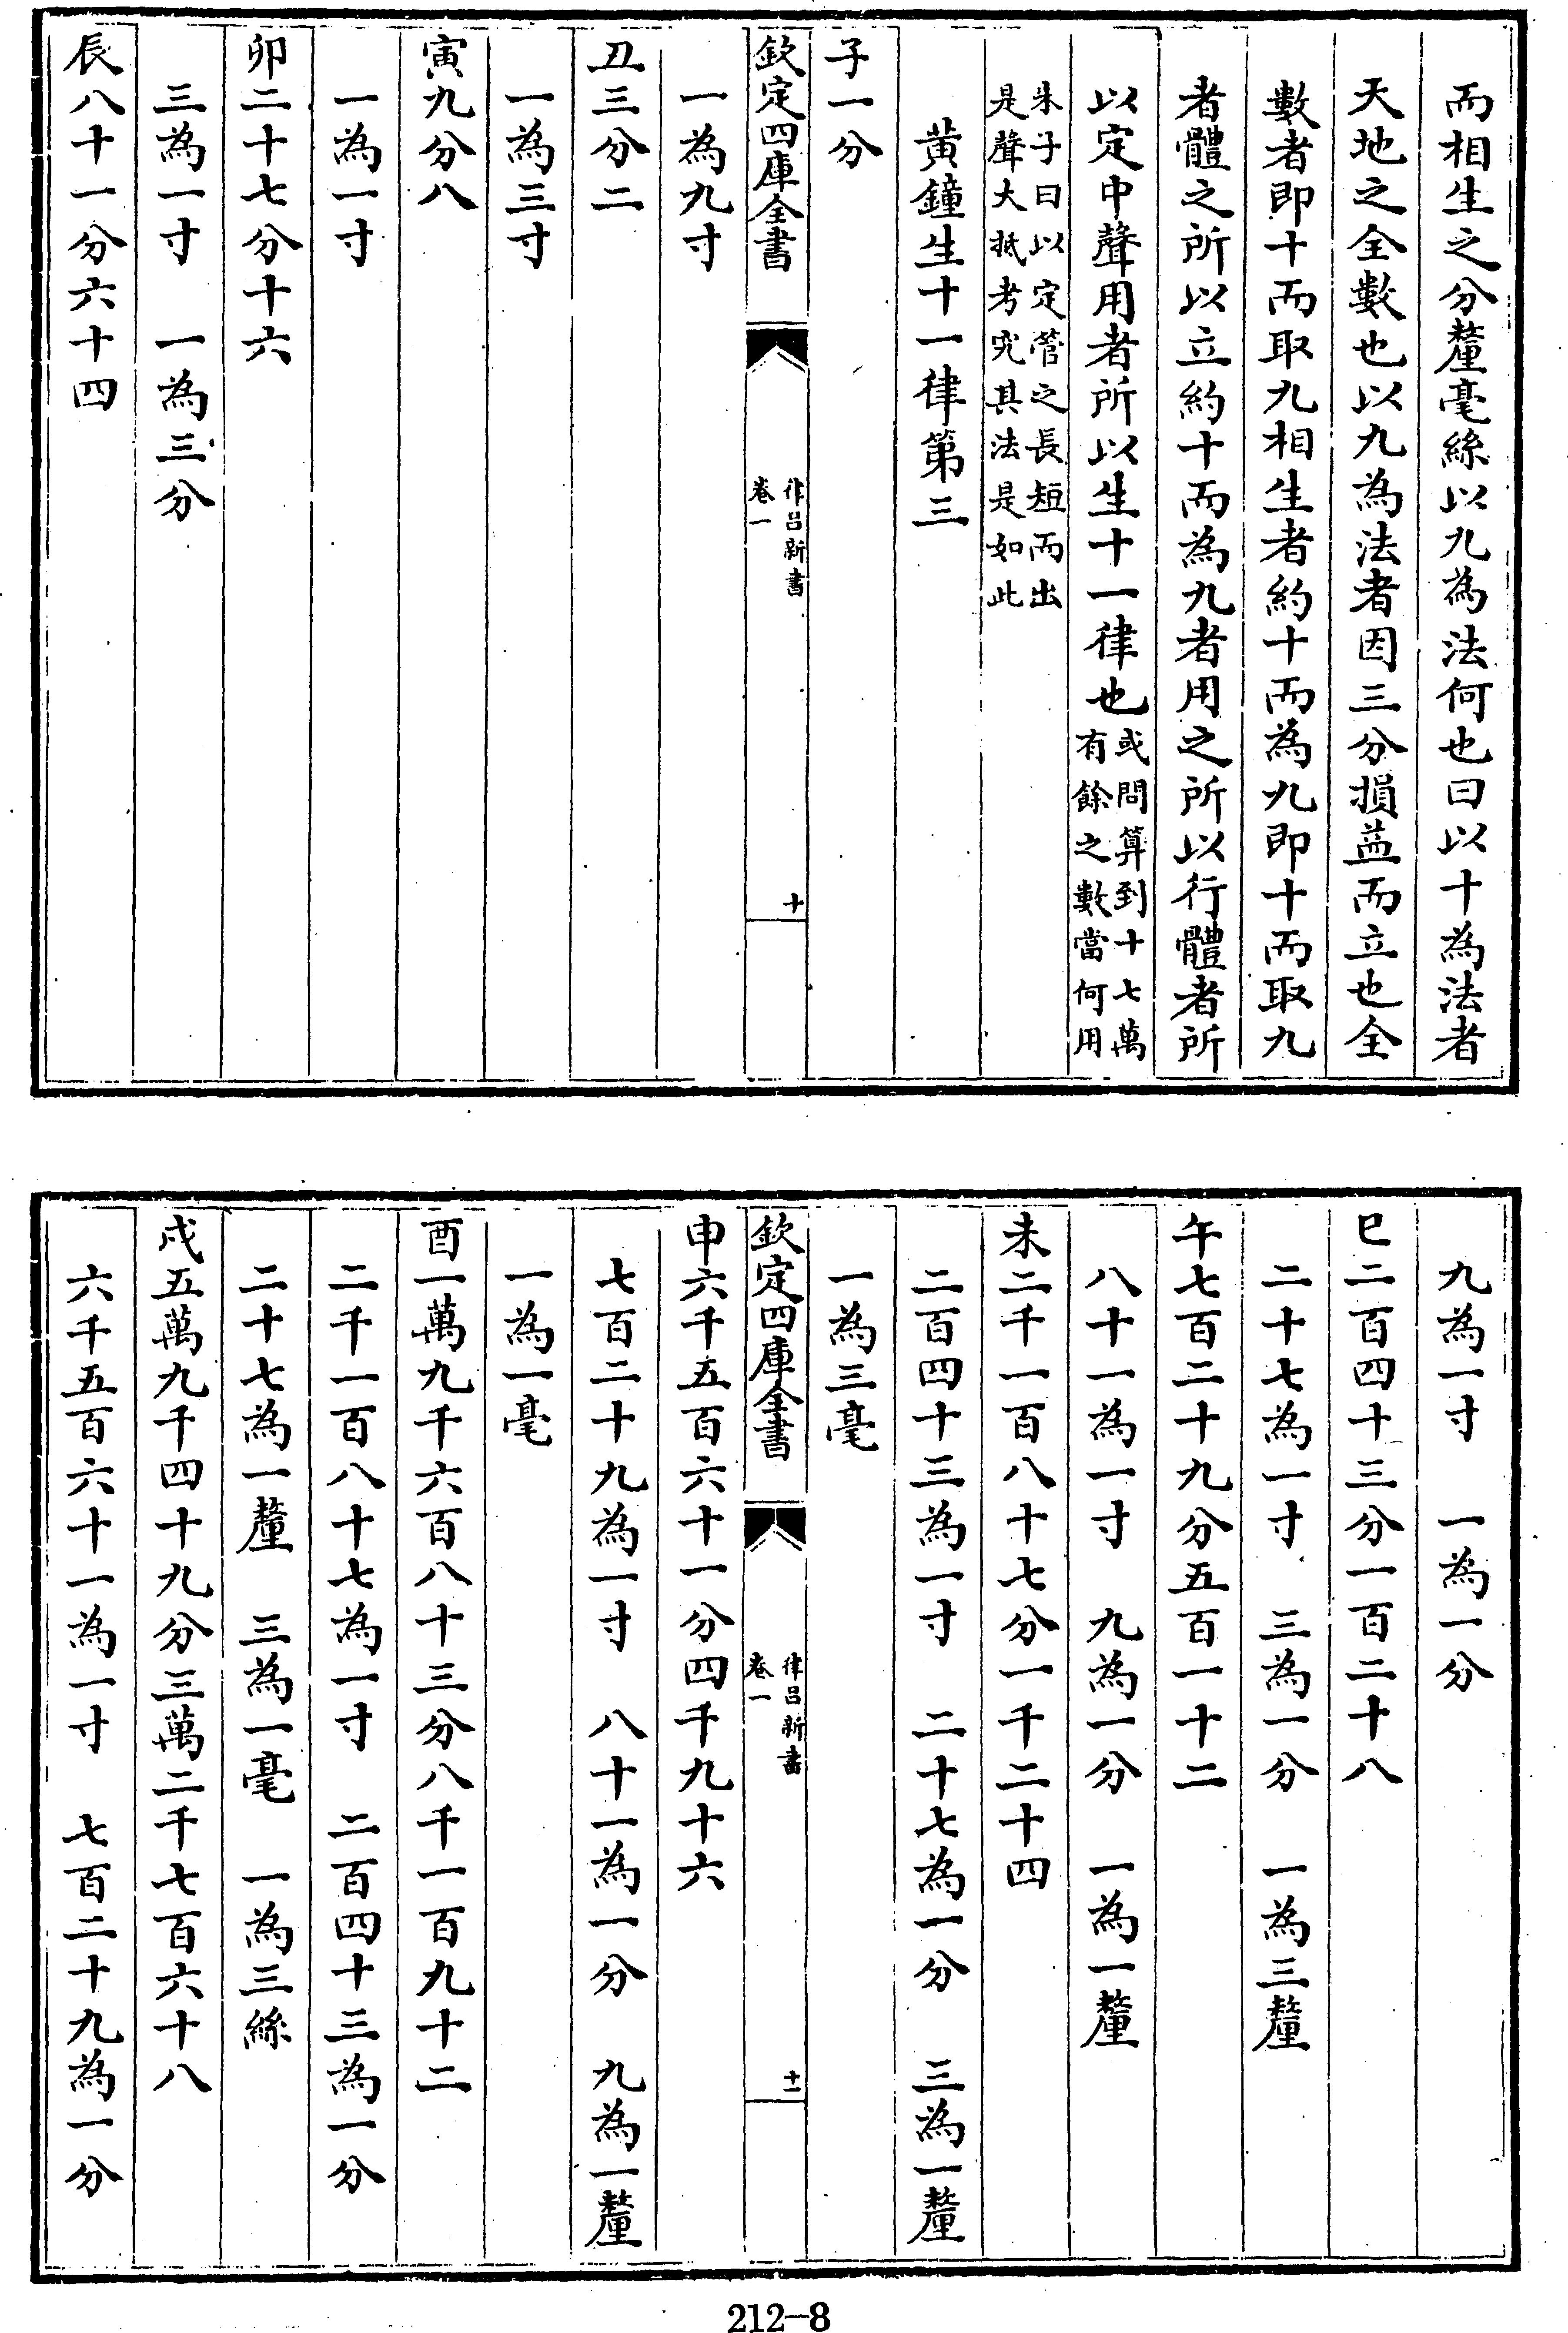 而相生之分釐毫絲以九為法何也曰以十為法者
天地之全數也以九為法者因三分損益而立也全
數者即十而取九相生者約十而為九即十而取九
者體之所以立約十而為九者用之所以行體者所
以定中聲用者所以生十一律也或問算到十七萬
有餘之數當何用
朱子曰以定管之長短而出
是聲大抵考究其法是如此
黄鐘生十一律第三
子一分
欽定四庫全書
律吕新書
卷一
十
一為九寸
丑三分二
一為三寸
寅九分八
一為一寸
卯二十七分十六
三為一寸 一為三分
辰八十一分六十四
九為一寸 一為一分
巳二百四十三分一百二十八
二十七為一寸 三為一分 一為三釐
午七百二十九分五百一十二
八十一為一寸 九為一分 一為一釐
未二千一百八十七分一千二十四
二百四十三為一寸 二十七為一分 三為一釐
一為三毫
欽定四庫全書
律吕新書
卷一
十一
申六千五百六十一分四千九十六
七百二十九為一寸 八十一為一分 九為一釐
一為一毫
酉一萬九千六百八十三分八千一百九十二
二千一百八十七為一寸 二百四十三為一分
二十七為一釐 三為一毫 一為三絲
戌五萬九千四十九分三萬二千七百六十八
六千五百六十一為一寸 七百二十九為一分
212-8